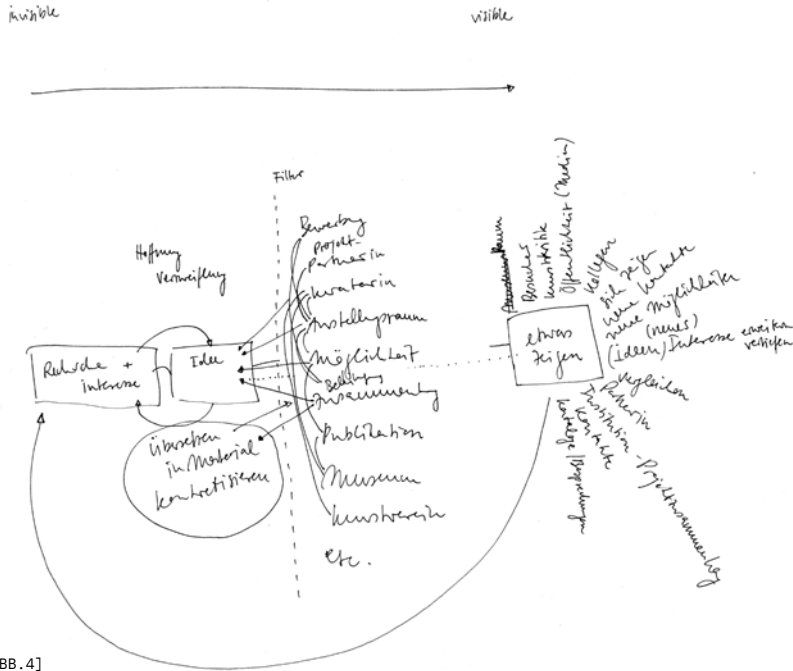 invisible
visible
Filter
Hoffnung
Verzweiflung
Recherche +
interesse
Idee
übersetzen
in Material
konkretisieren
Bewerbung
Projekt-
partnerin
kuratorin
Ausstellungsraum
Möglichkeit
zusammenhang
Publikation
Museum
kunstverein
etc.
etwas
zeigen
Besucher
kunstkritik
Öffentlichkeit (Medien)
Kollegen
sich zeigen
neue kontakte
neue Möglichkeiten
(neues)
(ideen) Interesse erweitern
vertiefen
vergleichen
Partnerin
Institution - Projektzusammenhang
Kontakte
Kataloge/Besprechungen
BB.4]